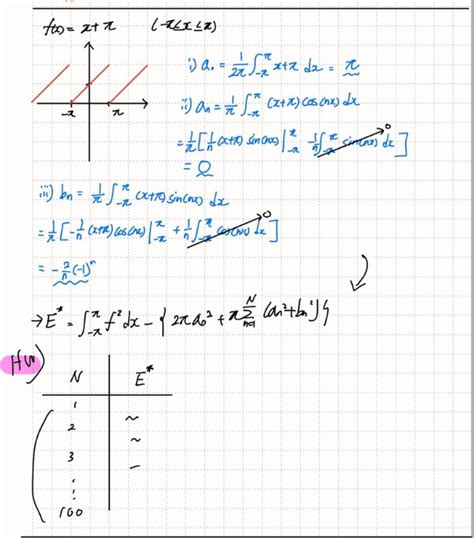 f(x) = x+π (-π≤x≤π)
-π π
i) a₀ = 1/2π ∫_{-π}^{π} x+π dx = π
ii) aₙ = 1/π ∫_{-π}^{π} (x+π) cos(nx) dx
= 1/π [ 1/n (x+π) sin(nx) |_{-π}^{π} - 1/n ∫_{-π}^{π} sin(nx) dx ] 0
= 0
iii) bₙ = 1/π ∫_{-π}^{π} (x+π) sin(nx) dx
= 1/π [ -1/n (x+π) cos(nx) |_{-π}^{π} + 1/n ∫_{-π}^{π} cos(nx) dx ] 0
= -2/n (-1)ⁿ
→ E* = ∫_{-π}^{π} f² dx - { 2πa₀² + π Σ_{n=1}^{N} (aₙ² + bₙ²) }
N E*
1
2 ~
~
3 –
100